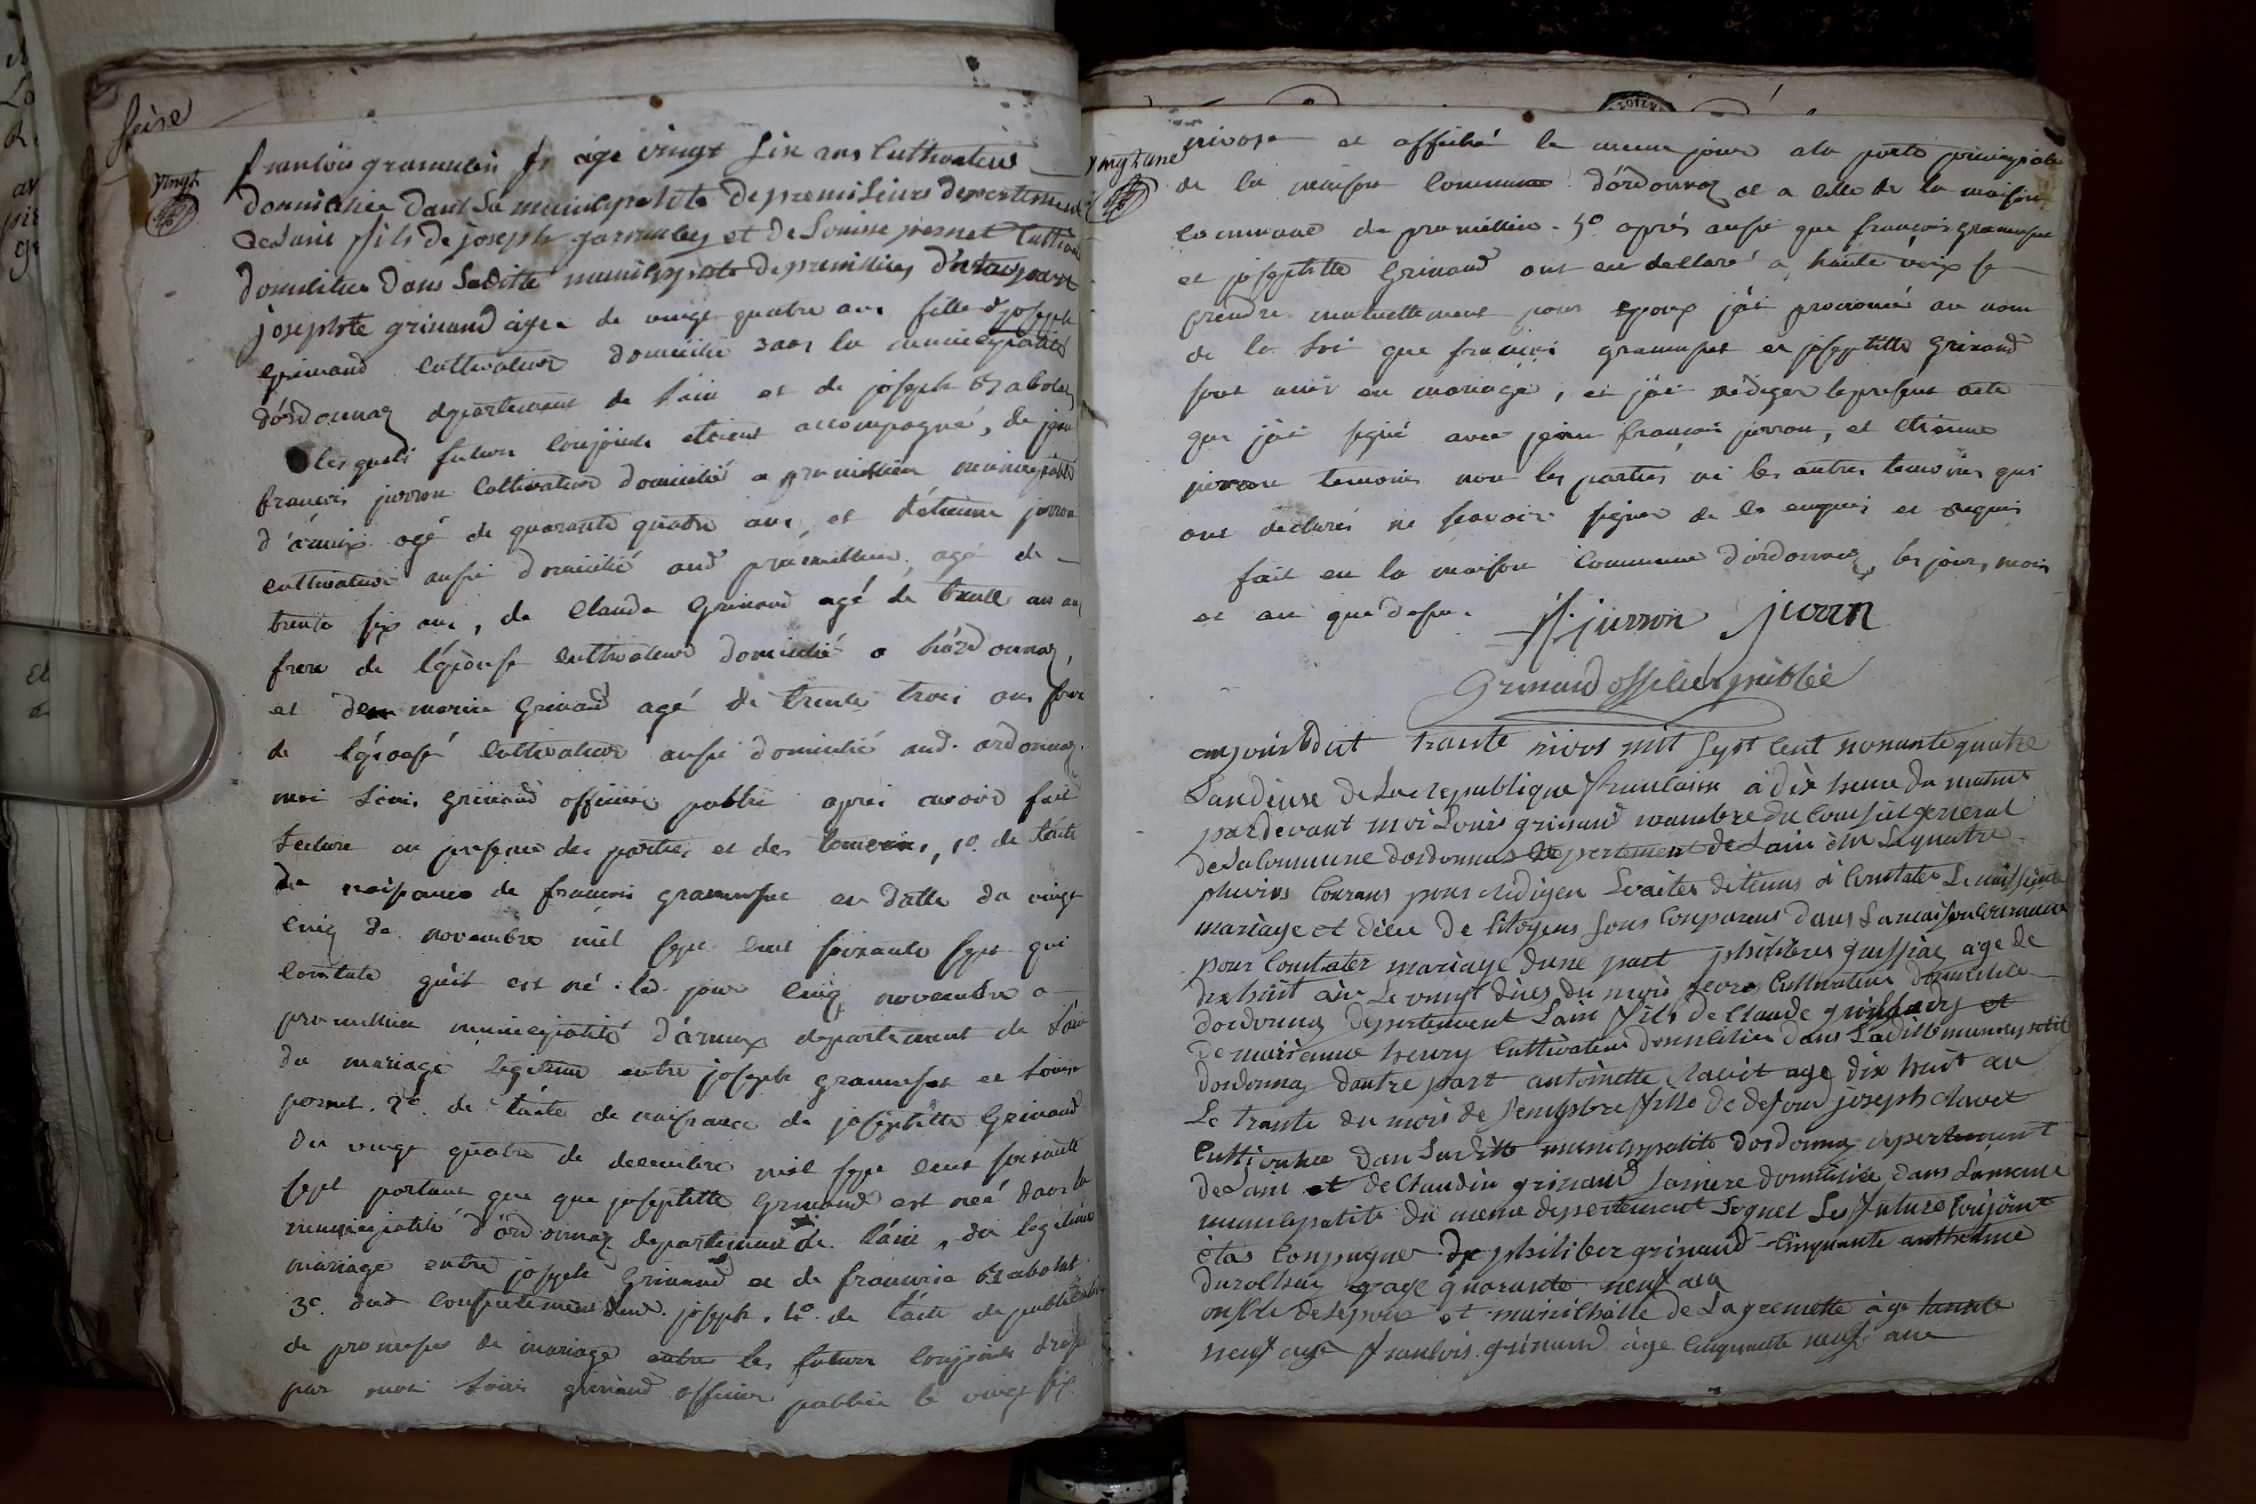 seise
vingt
francois gramusset age vingt six ans Cultivateur
domicilié dans La municipalité de premilieux departement
de Lain fils de joseph et de Louise pernet Cultiva
domiciliés dans Laditte municipalité de premillieu d'autre part
josephte grinand agée de vingt quatre ans fille d joseph
grinand Cultivateur domicilié dans la municipalité
d'ordonnaz departement de lain et de
les quels futurs conjoints etoient accompagné, de jean
francois jurron Cultivateur domicilié a premillieu municipalité
d'armix agé de quarante quatre ans, et d'étienne jurron
cultivateur aussi domicilié aud premillieu, agé de
trente six ans, de Claude Grinand agé de trente un ans
frere de l'épouse cultivateur domicilié a hordonnaz,
et de marin Grinand agé de trente trois ans frere
de l'épouse cultivateur aussi domicilié aud. ordonnaz.
moi Louis Grinand officier public apres avoir fait
lecture en presence des parties et des temoins, 1o. de lacte
de naissance de francois gramusset en datte du vingt
cinq de novembre mil sept cent soixante sept qui
constate qu'il est né led. jour cinq novembre a
premillieu municipalité d'armix departement de Lain
du mariage legitime entre joseph gramusset et Louise
pernet. 2o. de lacte de naissance de josephtte Grinand
du vingt quatre de decembre mil sept cent soixante
sept portant que que josephtte Grinand est née dans la
municipalité d'ordonnaz departement de lain, du legitime
mariage entre joseph Grinand et de
3o. dud consentement dud. joseph. 4o. de lacte de publication
de promesses de mariage entre les futurs conjoints dressé
par moi Louis grinand officier public le vingt six
vingt une
nivose et affiché le meme jour a la porte principale
de la maison Commune d'ordonnaz et a celle de la maison
commune de premillieu. 5o apres aussi que francois gramusset
et josephtte Grinand ont eu declaré a haute voix se
prendre mutuellement pour epoux j'ai prononcé au nom
de la loi que francois gramusset et josephtte Grinand
sont unis en mariage, et j'ai rediger le present acte
que j'ai signé avec jean francois jurron, et etienne
jurron temoins non les parties ni les autres temoins qui
ont declarés ne scavoir signer de ce enquis et requis
fait en la maison Commune d'ordonnaz, les jour, mois
et an que dessu.
jurron jurrn
Grinand officier publie
aujourdhit trante nivos mil sept cent nonante quatre
Landeuse de La republique francaise à dix heure du matin
pardevant moi Louis grinand mambre du Conseil general
de La Commune dordonnas departement de Lain élu Le quatre
pluvios Courans pour rediger Les actes detinus à Constater Le naissance
mariage et dece de Citoyens sons Conparus dans La maison Commune
pour Constater mariage dune part philibers age de
dix huit an Le vingt du mois Cultivateur domicilié
dordonnaz departement Lain fils de Claude et
de marianne henry Cultivateur domiciliés dans Laditte municipalité
dordonnaz dautre part antoinette Clavet age dix huit an
Le trante du mois de septembre fille de defeun joseph clavet
Cultivateur dan Laditte municipalité dordonnaz departement
de Lain et de Claudin grinand Lamere domiciliée dans La meme
municipalité du meme departement Lequel Les futurs Conjoint
étas Conpagner de philiber grinand cinquante
age quarante neuf ans
oncle de Lepoue et de Lagremette age tante
neuf ans francois grinand age Cinquante neuf ans